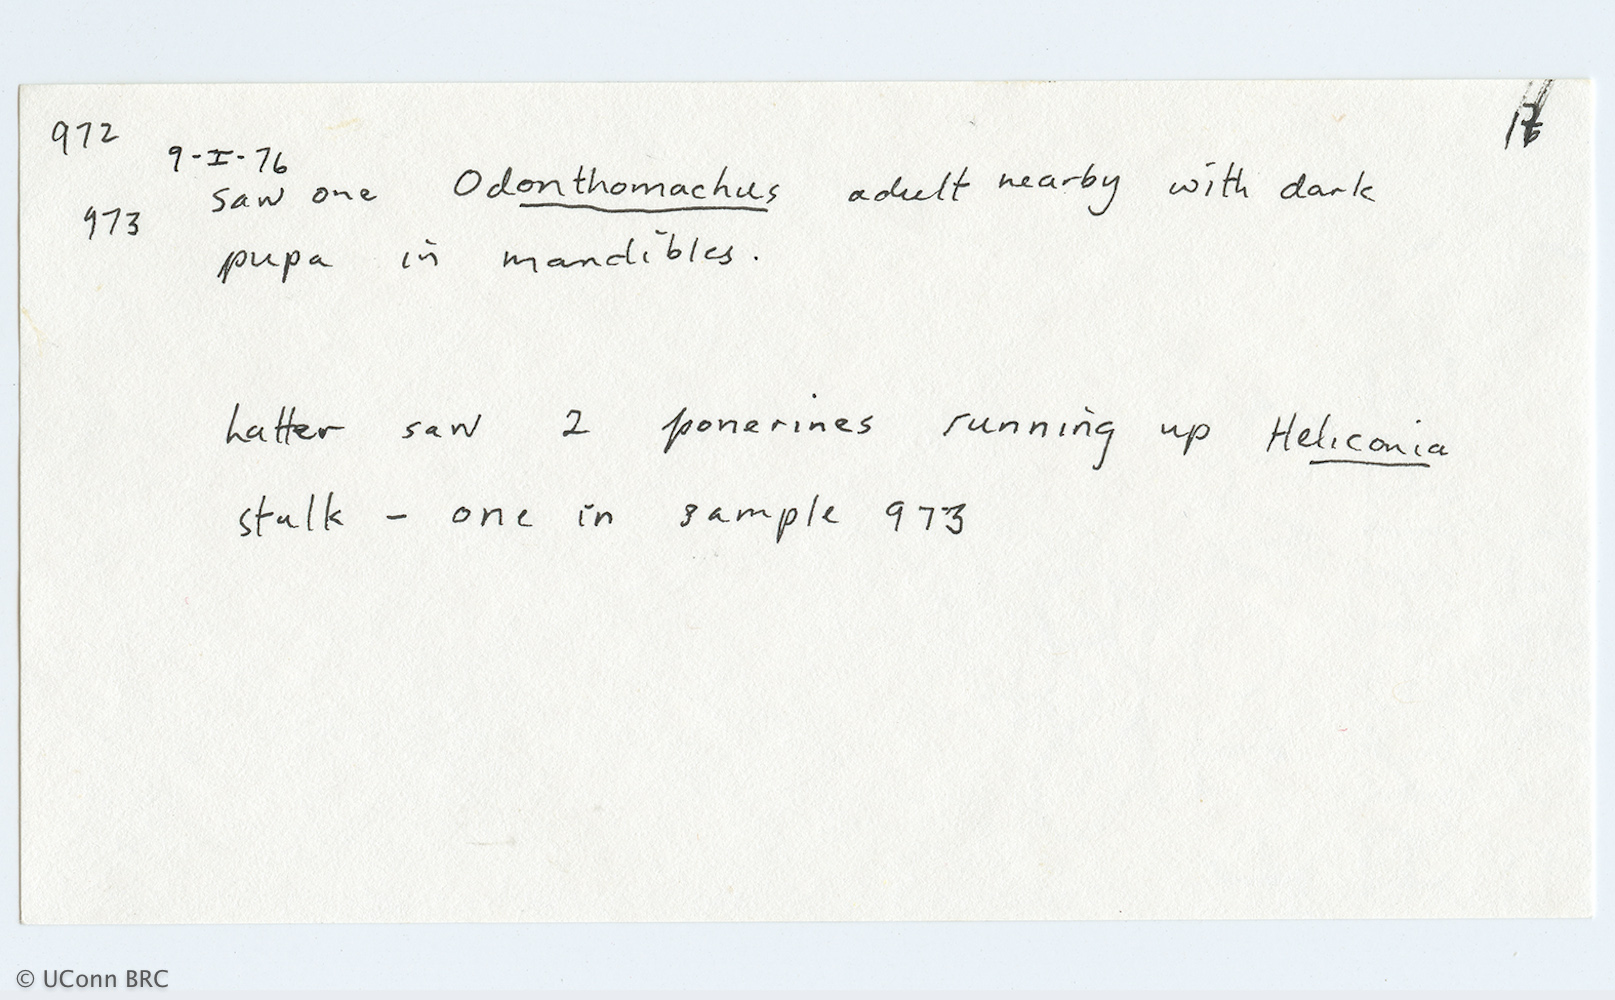 972
9-I-76
saw one Odonthomachus adult nearby with dark
973
pupa in mandibles.
Latter saw 2 ponerines running up Heliconia
stalk - one in sample 973
© UConn BRC